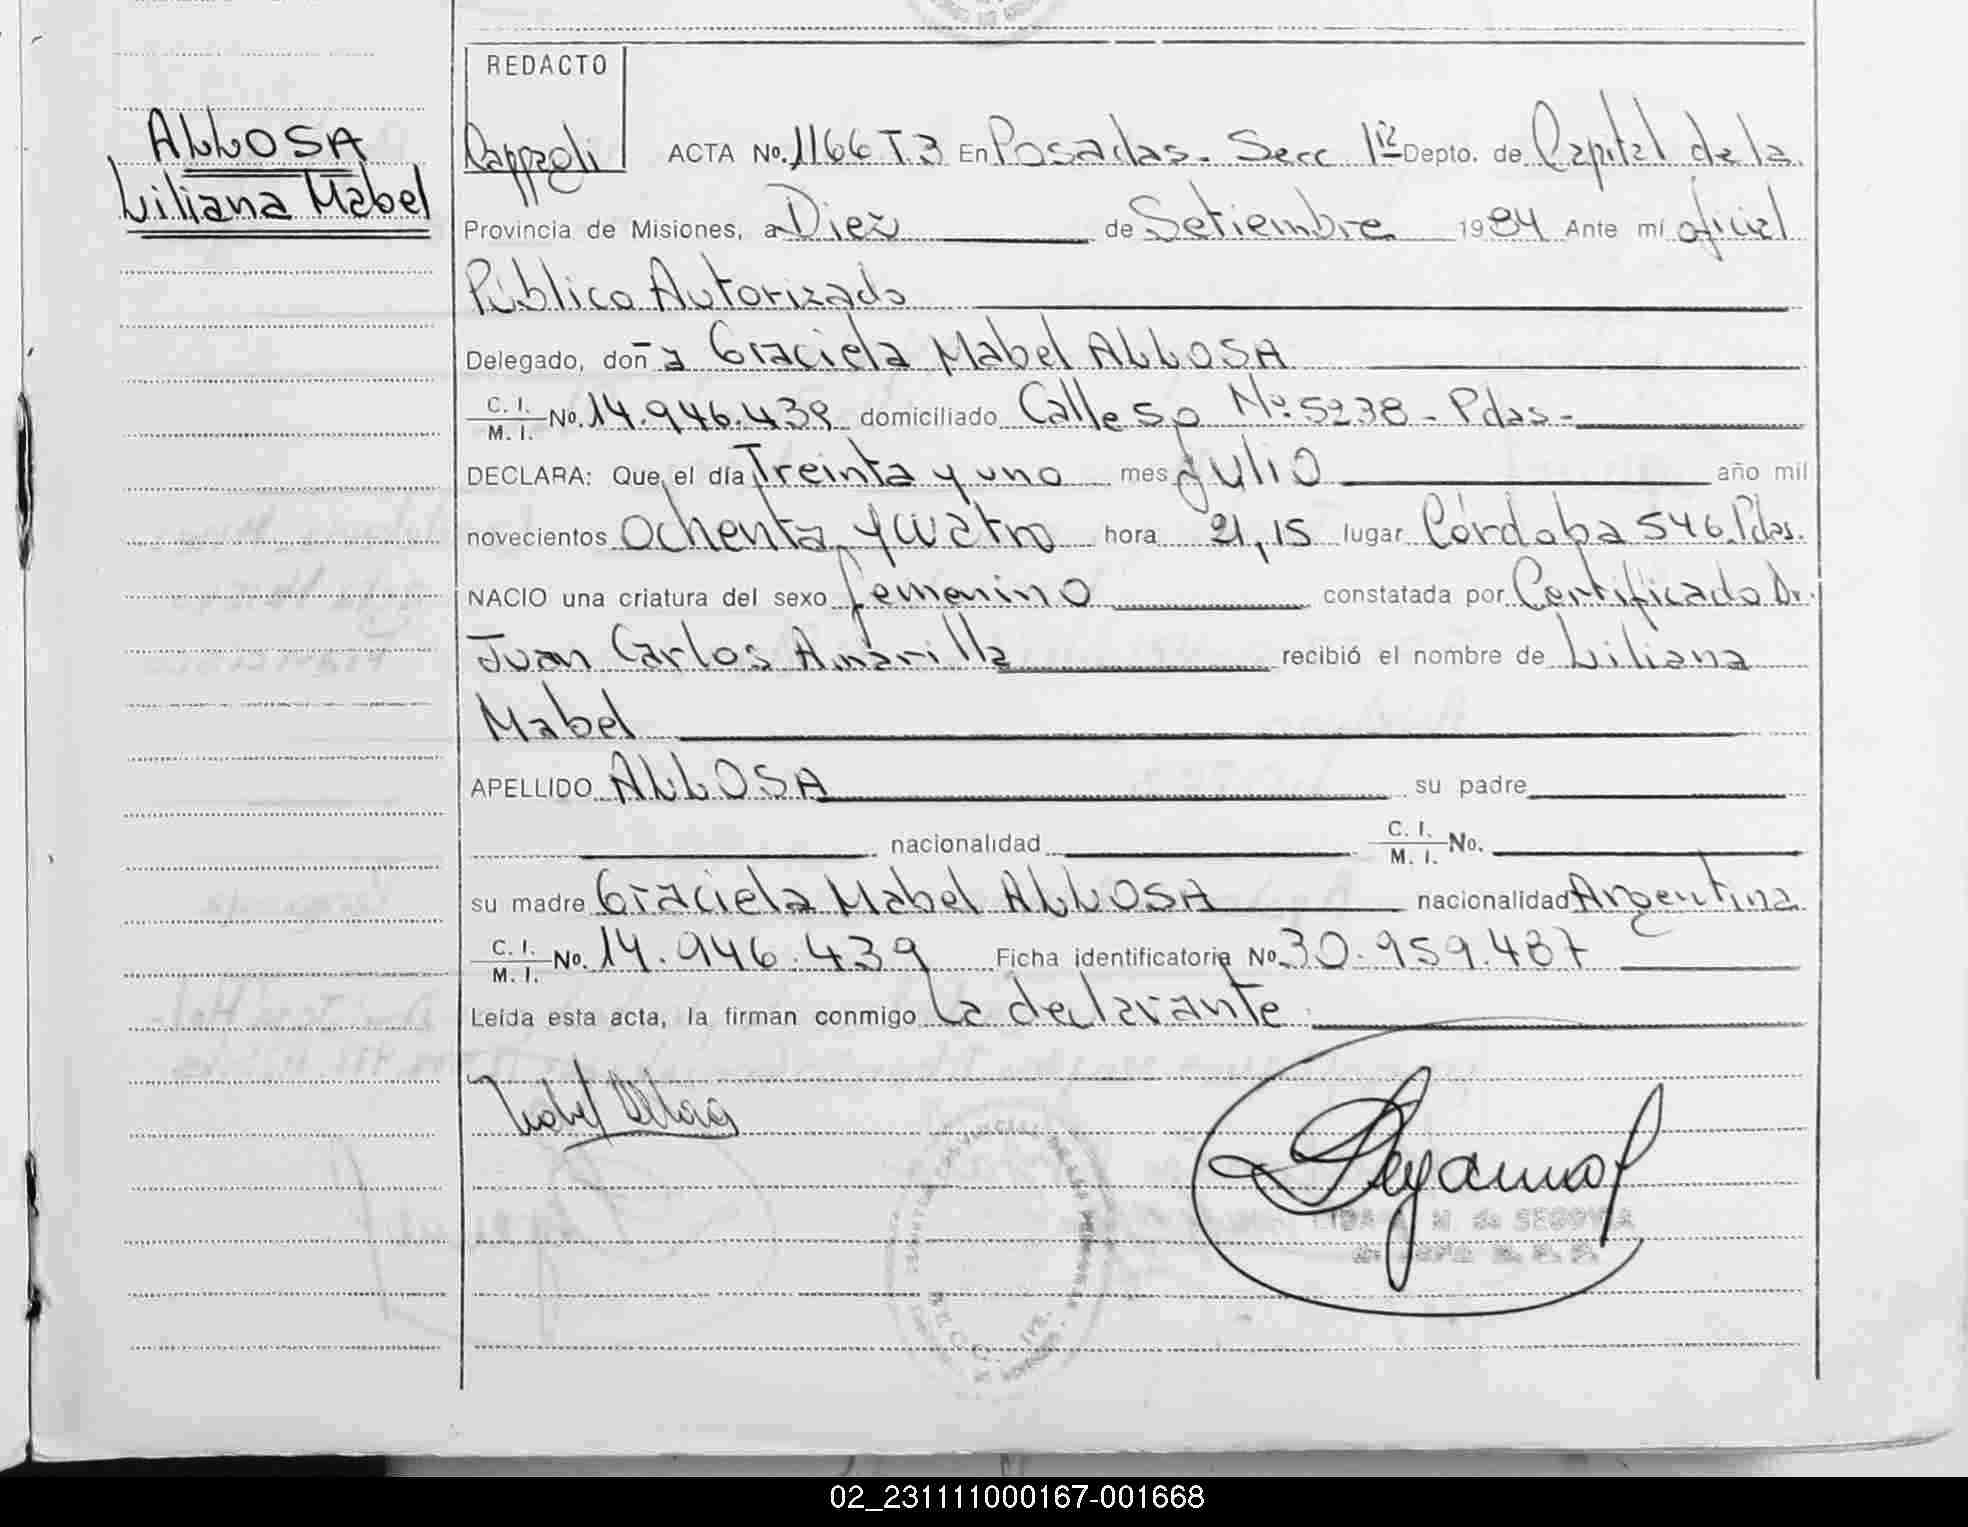 REDACTO
ALLOSA
Liliana Mabel
Cappeli ACTA No. 1166 T.3 En Posadas. Secc 1ª Depto. de Capital de la
Provincia de Misiones, a Diez de Setiembre 1984 Ante mí oficial
Público Autorizado
Delegado, doña Graciela Mabel ALLOSA
C. I.
M. I. No. 14.946.439 domiciliado Calle 50 Nº 5238 - Pdas -
DECLARA: Que el día Treinta y uno mes Julio año mil
novecientos Ochenta y cuatro hora 21,15 lugar Córdoba 546 Pdas.
NACIO una criatura del sexo femenino constatada por Certificado Dr.
Juan Carlos Amarilla recibió el nombre de Liliana
Mabel
APELLIDO ALLOSA su padre
nacionalidad C. I.
M. I. No.
su madre Graciela Mabel ALLOSA nacionalidad Argentina
C. I.
M. I. No. 14.946.439 Ficha identificatoria No. 30.959.487
Leída esta acta, la firman conmigo La declarante
de SEGOVIA
02_231111000167-001668